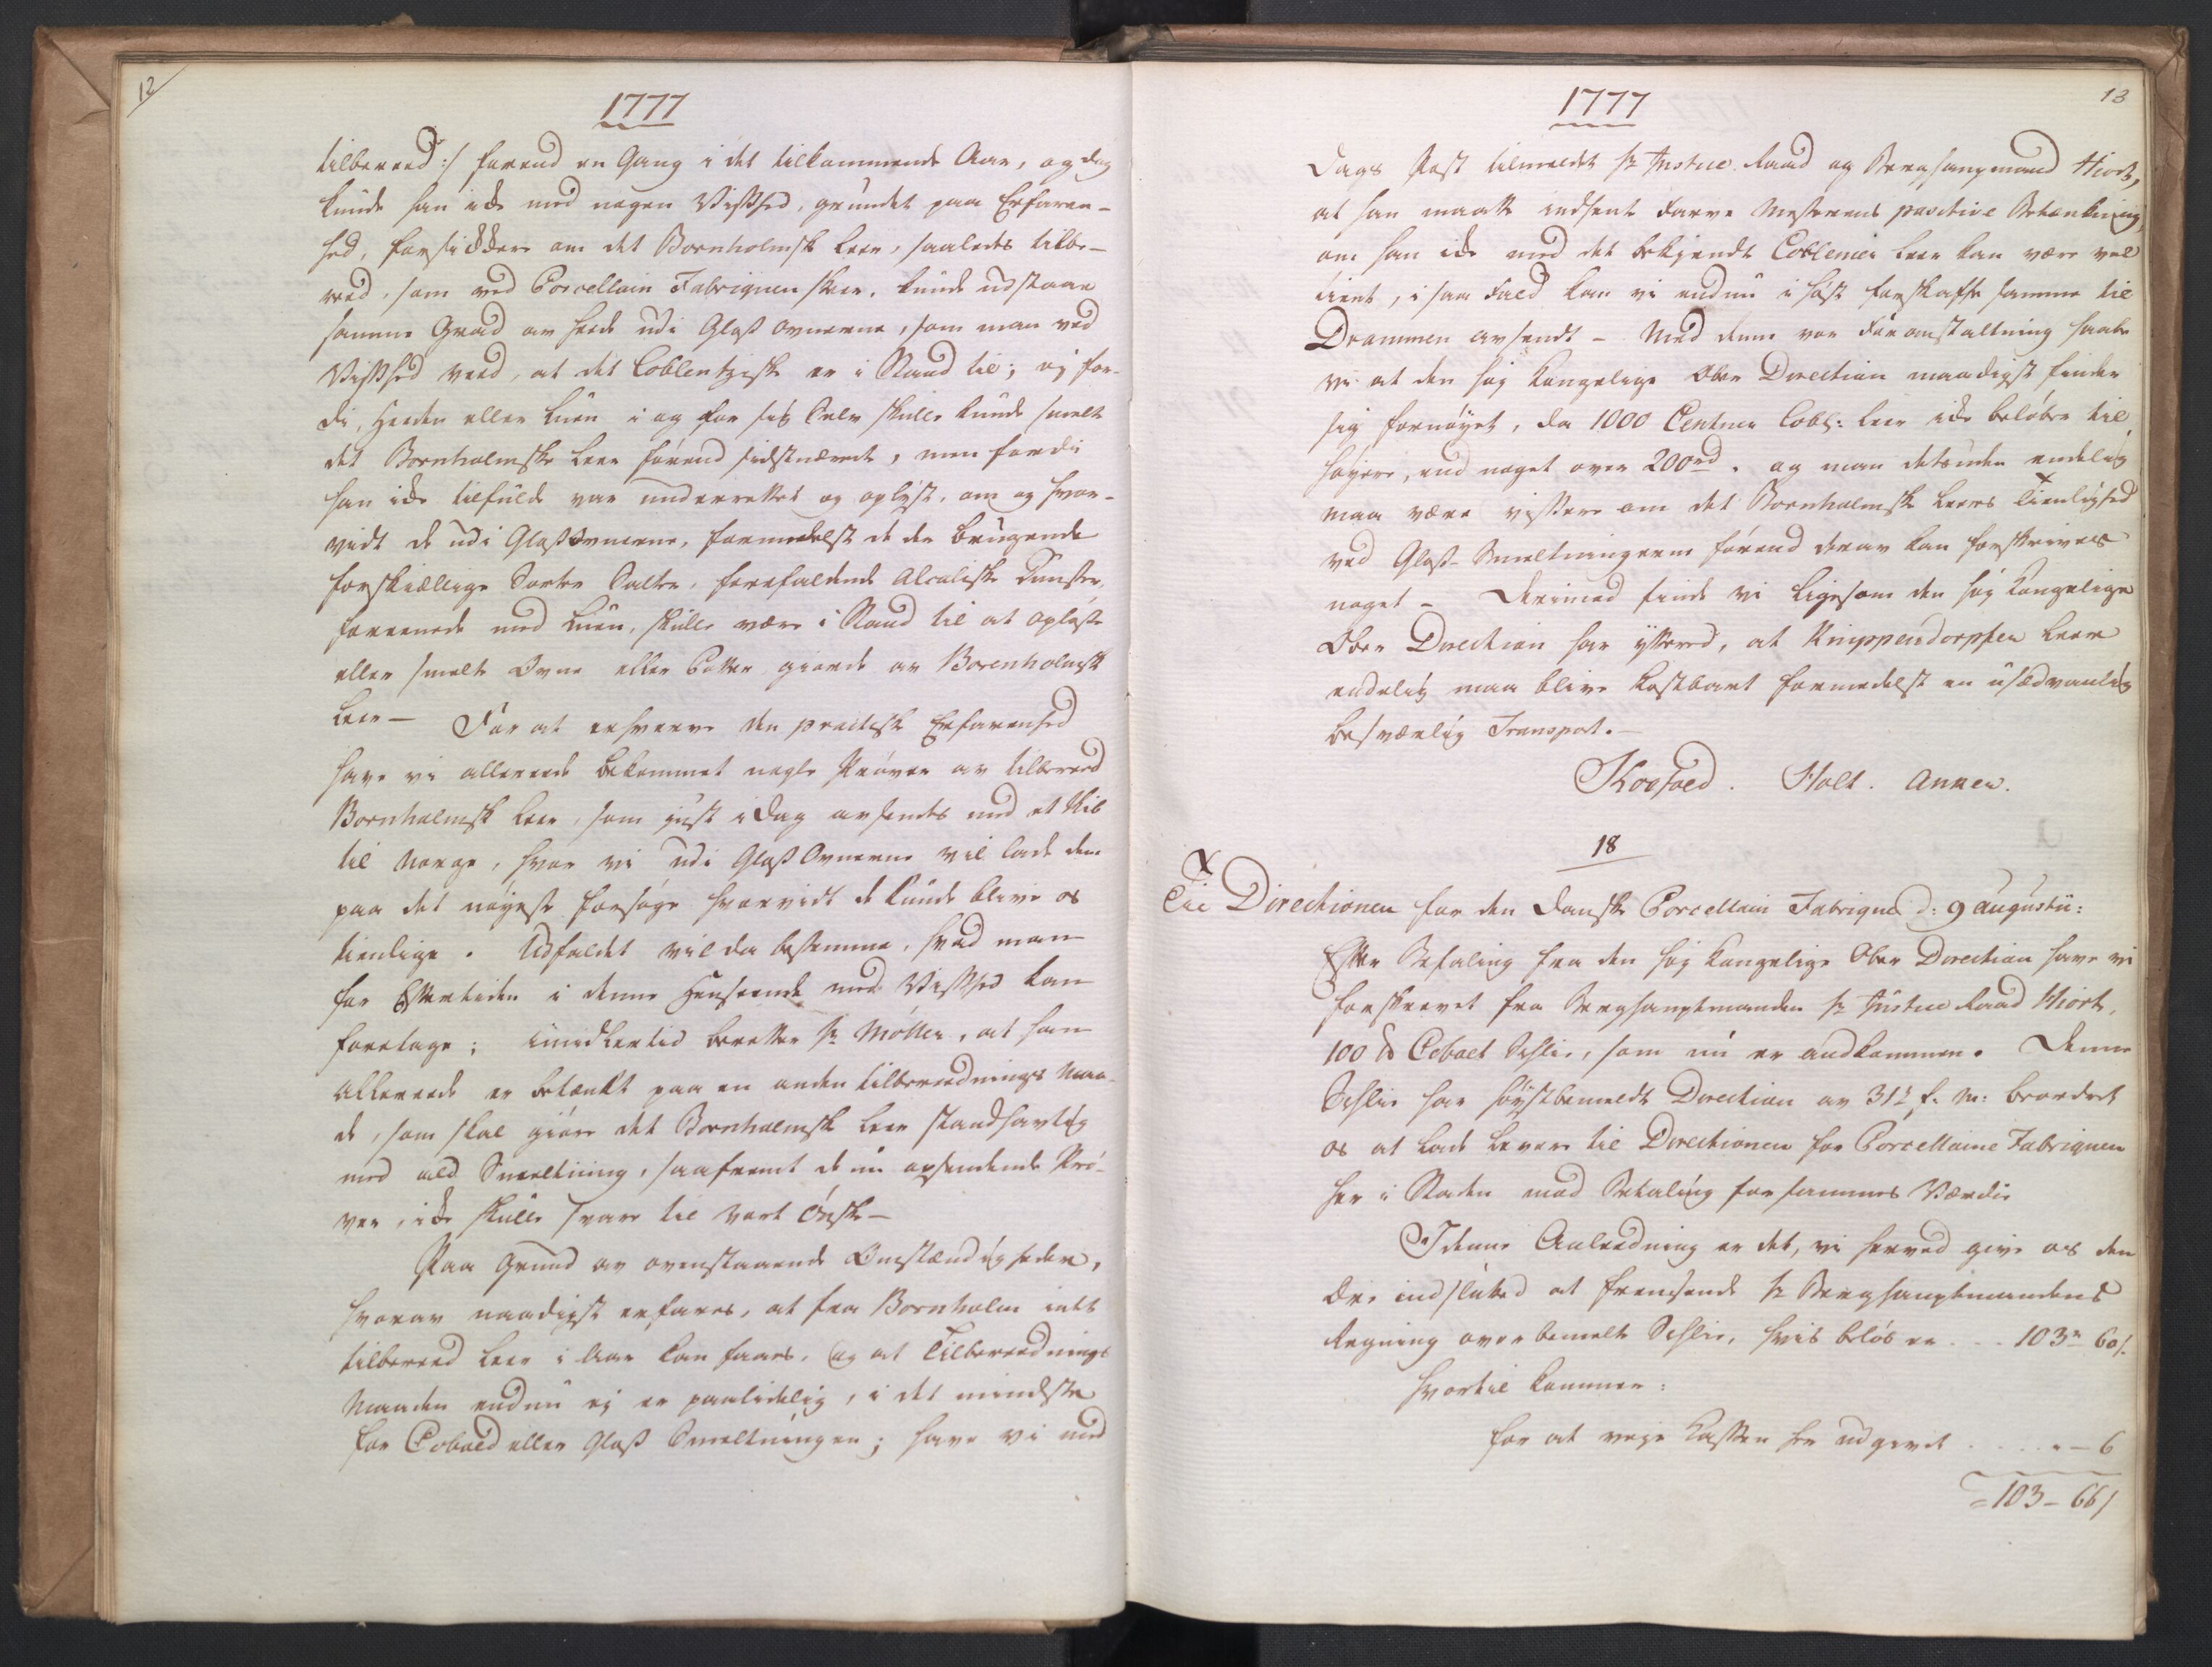 12
1777
tilbereed :/ førend en Gang i det tilkommende Aar, og dog
kunde han icke med nogen Vished, grundet paa Erfaren-
hed, forsickkere om det Bornholmsk Leer, saaledes tilbe-
reed, som ved Porcellain Fabriquen skeer, kunde udstaae
samme Grad av Heede udi Glass Ovnerne, som man ved
Vished veed, at det Coblentziske er i Stand til; ej for-
di, Heeden eller Luen i og for sig Selv skulle kunde smelte
det Bornholmske Leer førend sidstnævnte, men fordi
han icke tilfulde var underrettet og oplyst, om og hvor-
vidt de udi Glassovnerne, formedelst de der brugende
forskiællige Sorter Salter, forefaldende alcaliske Dunster,
foreenede med Luen, skulle være i Stand til at opløse
eller smelte Ovne eller Potter giorde av Borenholmsk
Leer — For at erhverve den practiske Erfarenhed
have vi allereede bekommet nogle Prøver av tilbereed
Bornholmsk Leer, som just i Dag avsendes med et Skib
til Norge, hvor vi udi Glass Ovnerne vil lade dem
paa det nøyeste forsøge hvorvidt de kunde blive os
tienlige. Udfaldet vil da bestemme, hvad man
for Eftertiden i denne Henseende med Vished kan
foretage; imidlertid beretter Hr Møller, at han
allereede er betænkt paa en anden tilberednings Maa-
de, som skal giøre det Bornholmsk Leer standhavtig
mod ald Smeltning, saafremt de nu opsendende Prø-
ver, icke skulle svare til vort Ønske —
Paa Grund av ovenstaaende Omstændigheder,
hvorav naadigst erfares, at fra Bornholm intet
tilbereed Leer i Aar kan faaes, og at Tilberednings
Maaden endnu ej er paalidelig, i det mindste
for Cobold eller Glass Smeltningen; have vi med
13
1777
Dags Post tilmeldet Hr Justice Raad og Berghauptmand Hiort,
at han maatte indhente Farve Mesterens positive Betænkning,
om han icke med det bekiendte Coblenzer Leer kan være vel
tient, i saa Fald kan vi endnu i Høst forskaffe samme til
Drammen avsendt — Med denne vor Foranstaltning haabe
vi at den høy Kongelige Ober Direction naadigst finder
sig fornøyet, da 1000 Centner Cobl: Leer icke beløber til
høyere, end noget over 200 rd, og man desuden endelig
maa være vissere om det Bornholmske Leers Tienlighed
ved Glass-Smeltningerne førend derav kan forskrives
noget — Derimod finde vi ligesom den høy Kongelige
Ober Direction har yttered, at Knippendorpfer Leer
endelig maa blive kostbart formedelst en usædvanlig
besværlig Transport. —
Kofoed. Holt. Anker.
18
X
Til Directionen for den Danske Porcellain Fabrique d: 9 Augustii:
Efter Befaling fra den høy Kongelige Ober Direction have vi
forskrevet fra Berghauptmanden Hr Justice Raad Hiort,
100 ℔ Cobolt Schlie, som nu er andkommen. Denne
Schlie har høystbemeldte Direction av 31te f. M: beordret
os at lade levere til Directionen for Porcellaine Fabriquen
her i Staden mod Betaling for sammes Værdie
I denne Anledning er det, vi herved give os den
Ære indsluted at fremsende Hr Berghauptmandens
Regning over bemelte Schlie, hvis beløb er . . . 103 r 60 s.
hvortil kommer:
for at veye Kassen her udgivet . . . . . " — 6
= 103 — 66 s